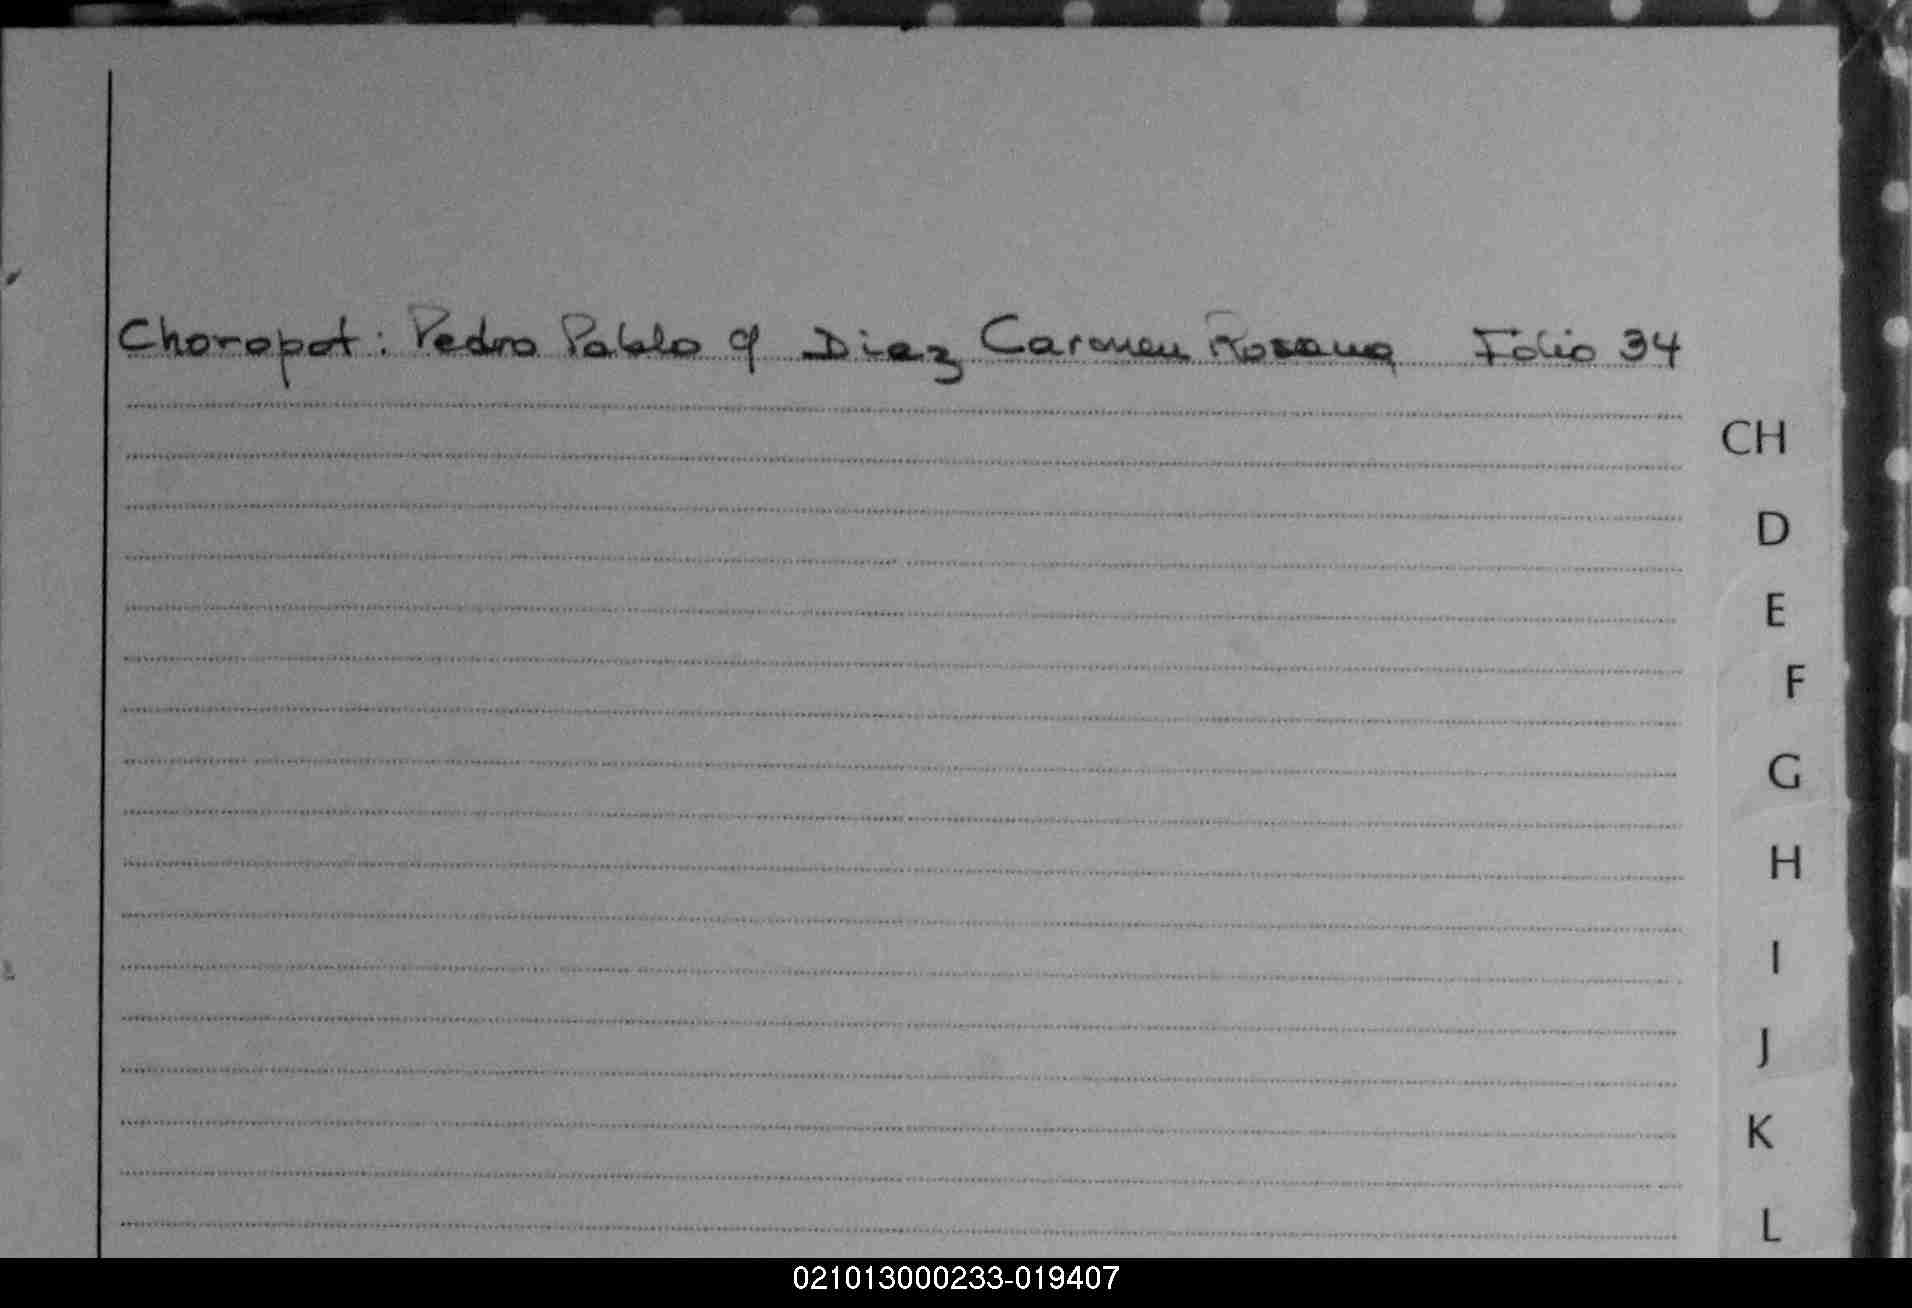 Choropot: Pedro Pablo y Diaz Carmen Rosana Folio 34
CH
D
E
F
G
H
I
J
K
L
021013000233-019407